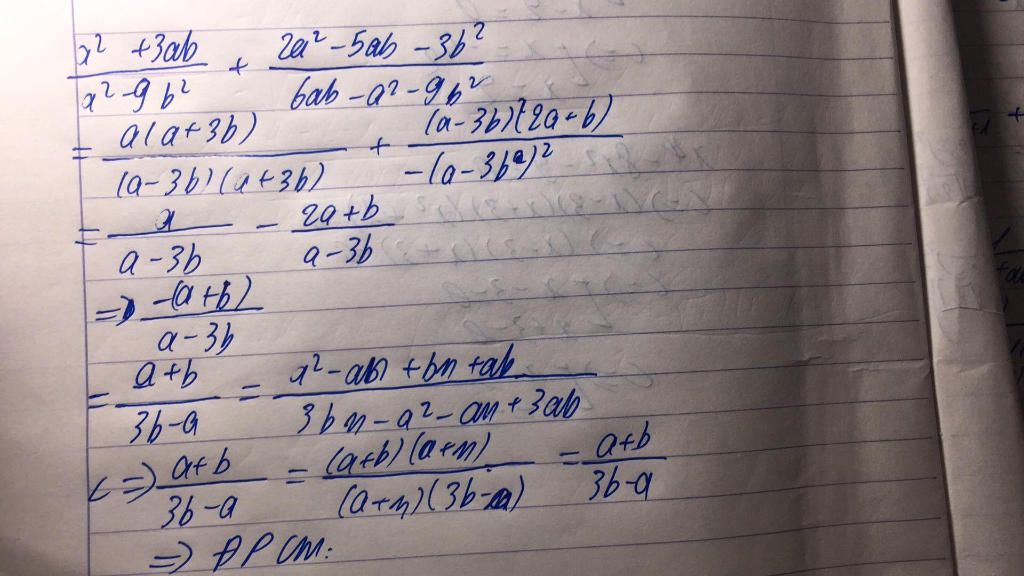 a² + 3ab / a² - 9b² + 2a² - 5ab - 3b² / 6ab - a² - 9b²
= a(a + 3b) / (a - 3b)(a + 3b) + (a - 3b)(2a + b) / -(a - 3b)²
= a / a - 3b - 2a + b / a - 3b
=> -(a + b) / a - 3b
= a + b / 3b - a = a² - abn + bn + ab / 3bn - a² - an + 3ab
<=> a + b / 3b - a = (a + b)(a + n) / (a + n)(3b - a) = a + b / 3b - a
=> ĐPCM: